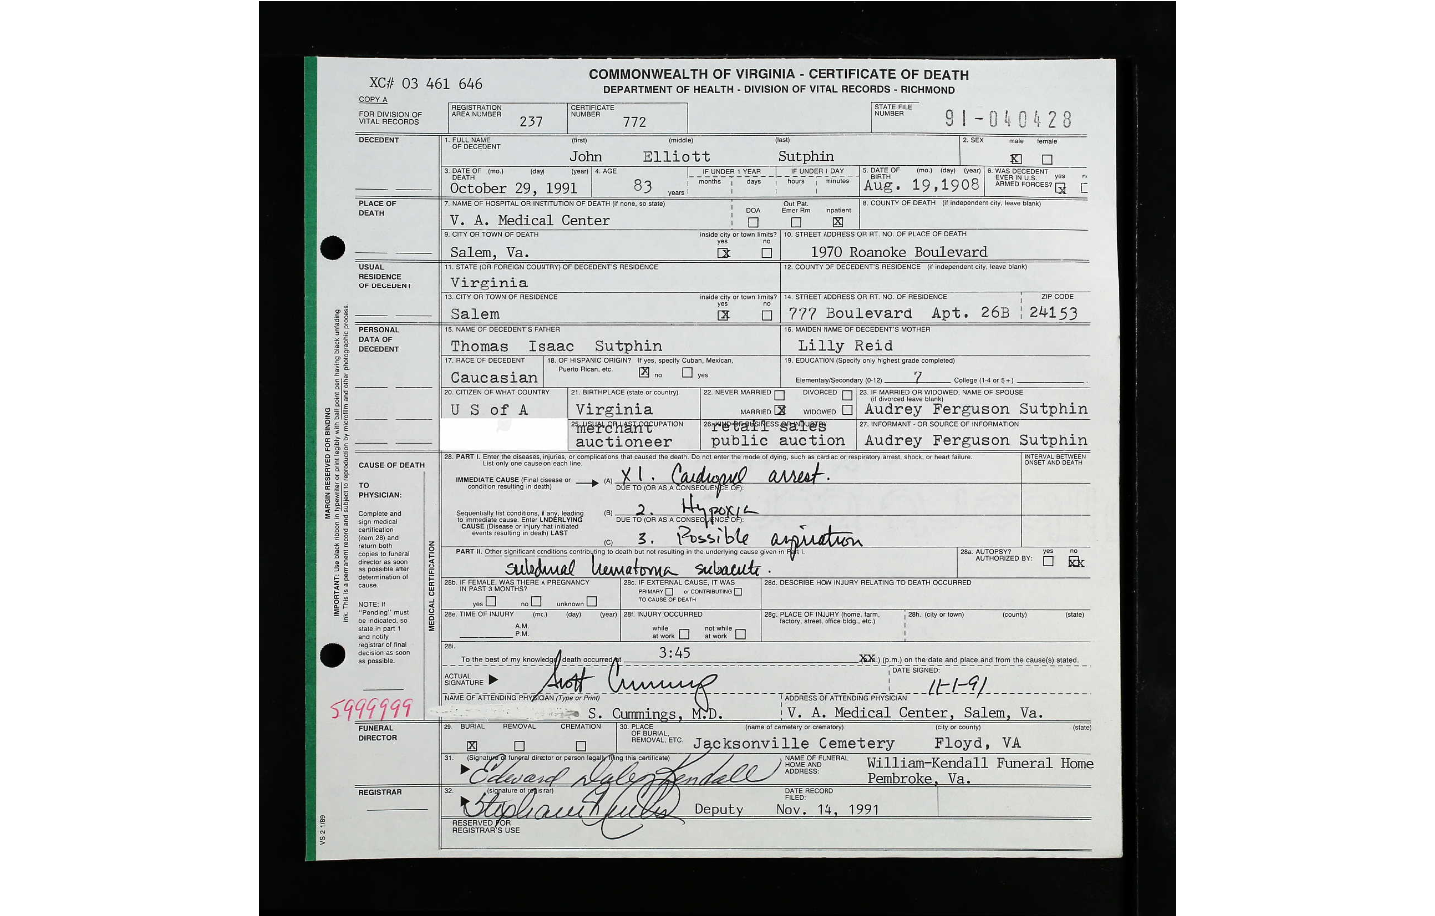 XC# 03 461 646
COMMONWEALTH OF VIRGINIA - CERTIFICATE OF DEATH
DEPARTMENT OF HEALTH - DIVISION OF VITAL RECORDS - RICHMOND
COPY A
FOR DIVISION OF VITAL RECORDS
REGISTRATION AREA NUMBER 237
CERTIFICATE NUMBER 772
STATE FILE NUMBER 91-040428
DECEDENT
1. FULL NAME OF DECEDENT (first) (middle) (last)
John Elliott Sutphin
2. SEX male X female
3. DATE OF DEATH (mo.) (day) (year)
October 29, 1991
4. AGE 83 years
IF UNDER 1 YEAR months days
IF UNDER 1 DAY hours minutes
5. DATE OF BIRTH (mo.) (day) (year)
Aug. 19,1908
6. WAS DECEDENT EVER IN U.S. ARMED FORCES? yes X
PLACE OF DEATH
7. NAME OF HOSPITAL OR INSTITUTION OF DEATH (if none, so state)
V. A. Medical Center
DOA Out Pat. Emer Rm Inpatient X
8. COUNTY OF DEATH (if independent city, leave blank)
9. CITY OR TOWN OF DEATH inside city or town limits? yes X no
Salem, Va.
10. STREET ADDRESS OR RT. NO. OF PLACE OF DEATH
1970 Roanoke Boulevard
USUAL RESIDENCE OF DECEDENT
11. STATE (OR FOREIGN COUNTRY) OF DECEDENT'S RESIDENCE
Virginia
12. COUNTY OF DECEDENT'S RESIDENCE (if independent city, leave blank)
13. CITY OR TOWN OF RESIDENCE inside city or town limits? yes X no
Salem
14. STREET ADDRESS OR RT. NO. OF RESIDENCE ZIP CODE
777 Boulevard Apt. 26B 24153
PERSONAL DATA OF DECEDENT
15. NAME OF DECEDENT'S FATHER
Thomas Isaac Sutphin
16. MAIDEN NAME OF DECEDENT'S MOTHER
Lilly Reid
17. RACE OF DECEDENT
Caucasian
18. OF HISPANIC ORIGIN? If yes, specify Cuban, Mexican, Puerto Rican, etc. X no yes
19. EDUCATION (Specify only highest grade completed)
Elementary/Secondary (0-12) 7 College (1-4 or 5+)
20. CITIZEN OF WHAT COUNTRY
U S of A
21. BIRTHPLACE (state or country)
Virginia
22. NEVER MARRIED DIVORCED
MARRIED X WIDOWED
23. IF MARRIED OR WIDOWED, NAME OF SPOUSE (if divorced leave blank)
Audrey Ferguson Sutphin
25. USUAL OR LAST OCCUPATION
merchant
auctioneer
26. KIND OF BUSINESS OR INDUSTRY
retail sales
public auction
27. INFORMANT - OR SOURCE OF INFORMATION
Audrey Ferguson Sutphin
MARGIN RESERVED FOR BINDING
IMPORTANT: Use black ribbon in typewriter or print legibly with ball point pen having black unfading ink. This is a permanent record and subject to reproduction by microfilm and other photographic process.
CAUSE OF DEATH
TO PHYSICIAN:
Complete and sign medical certification (item 28) and return both copies to funeral director as soon as possible after determination of cause.
NOTE: If "Pending" must be indicated, so state in part 1 and notify registrar of final decision as soon as possible.
MEDICAL CERTIFICATION
28. PART I. Enter the diseases, injuries, or complications that caused the death. Do not enter the mode of dying, such as cardiac or respiratory arrest, shock, or heart failure. List only one cause on each line.
INTERVAL BETWEEN ONSET AND DEATH
IMMEDIATE CAUSE (Final disease or condition resulting in death) (A) X 1. Cardiopul arrest.
DUE TO (OR AS A CONSEQUENCE OF):
Sequentially list conditions, if any, leading to immediate cause. Enter UNDERLYING CAUSE (Disease or injury that initiated events resulting in death) LAST
(B) 2. Hypoxia
DUE TO (OR AS A CONSEQUENCE OF):
(C) 3. Possible aspiration
PART II. Other significant conditions contributing to death but not resulting in the underlying cause given in Part I.
subdural hematoma subacute.
28a. AUTOPSY? AUTHORIZED BY: yes no XX
28b. IF FEMALE, WAS THERE A PREGNANCY IN PAST 3 MONTHS? yes no unknown
28c. IF EXTERNAL CAUSE, IT WAS PRIMARY or CONTRIBUTING TO CAUSE OF DEATH
28d. DESCRIBE HOW INJURY RELATING TO DEATH OCCURRED
28e. TIME OF INJURY (mo.) (day) (year) A.M. P.M.
28f. INJURY OCCURRED while at work not while at work
28g. PLACE OF INJURY (home, farm, factory, street, office bldg., etc.)
28h. (city or town) (county) (state)
28i. To the best of my knowledge, death occurred at 3:45 XX.) (p.m.) on the date and place and from the cause(s) stated.
ACTUAL SIGNATURE Scott Cummings
DATE SIGNED: 11-1-91
NAME OF ATTENDING PHYSICIAN (Type or Print)
S. Cummings, M.D.
ADDRESS OF ATTENDING PHYSICIAN
V. A. Medical Center, Salem, Va.
5999999
FUNERAL DIRECTOR
29. BURIAL X REMOVAL CREMATION
30. PLACE OF BURIAL, REMOVAL, ETC. (name of cemetery or crematory) (city or county) (state)
Jacksonville Cemetery Floyd, VA
31. (Signature of funeral director or person legally filing this certificate)
Edward Dale Kendall
NAME OF FUNERAL HOME AND ADDRESS:
William-Kendall Funeral Home
Pembroke, Va.
REGISTRAR
32. (signature of registrar)
Deputy
DATE RECORD FILED:
Nov. 14, 1991
RESERVED FOR REGISTRAR'S USE
VS 2 1/89